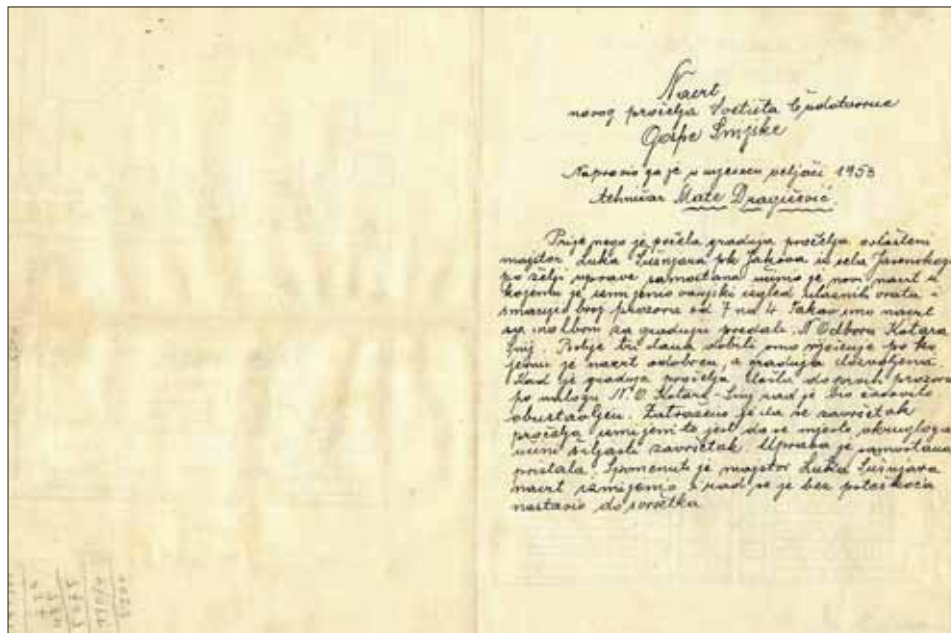 Nacrt
novog pročelja Svetišta Čudotvorne
Gospe Sinjske
Napravio ga je u mjesecu veljači 1953
tehničar Mate Dragičević.
Prije nego je počela gradnja pročelja ovlašteni
majstor Luka Sušnjara pk Jakova iz sela Jasensko
po želji uprave samostana učinio je novi nacrt u
kojemu je izmijenio vanjski izgled ulaznih vrata i
smanjio broj prozora od 7 na 4 Takav smo nacrt
sa molbom za gradnju predali N Odboru Kotara
Sinj. Poslje tri dana dobili smo rješenje po ko
jemu je nacrt odobren, a gradnja dozvoljena.
Kad je gradnja pročelja došla do prvih prozora
po nalogu N. O. Kotara-Sinj rad je bio
obustavljen. Zatraženo je da se završetak
pročelja izmijeni to jest da se mjesto okrugloga
učini šiljasti završetak. Uprava je samostana
pristala. Spomenuti je majstor Luka Sušnjara
nacrt izmijenio i rad se je bez poteškoća
nastavio do svršetka